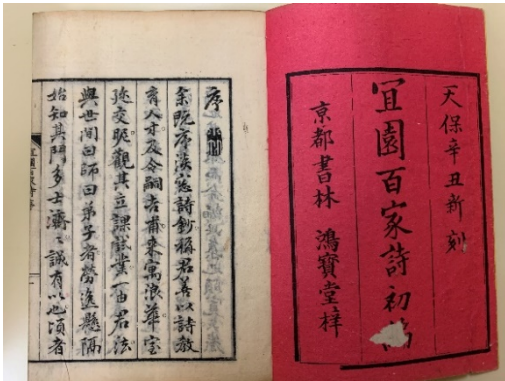 天保辛丑新刻
宜園百家詩初
京都書林 鴻寶堂梓
序
余既序淡窓詩鈔稱君善以詩教
育人才及令嗣吉甫来寓浪華
交昵觀其立課試業一由君法
與世間曰師曰弟子者勞逸懸隔
始知其門多士濟〻誠有以也頃者